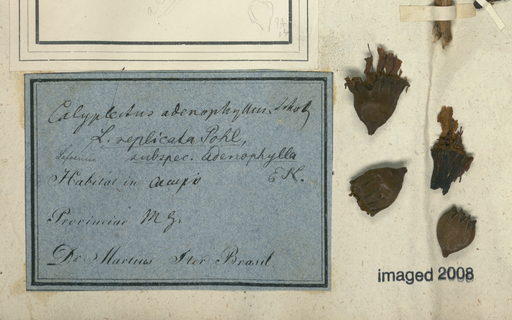 imaged 2008
Calyplectus adenophyllus
L. replicata Pohl,
subspec. adenophylla
Habitat in campis E K.
Provinciae M G.
Dr. Martius Iter Brasil